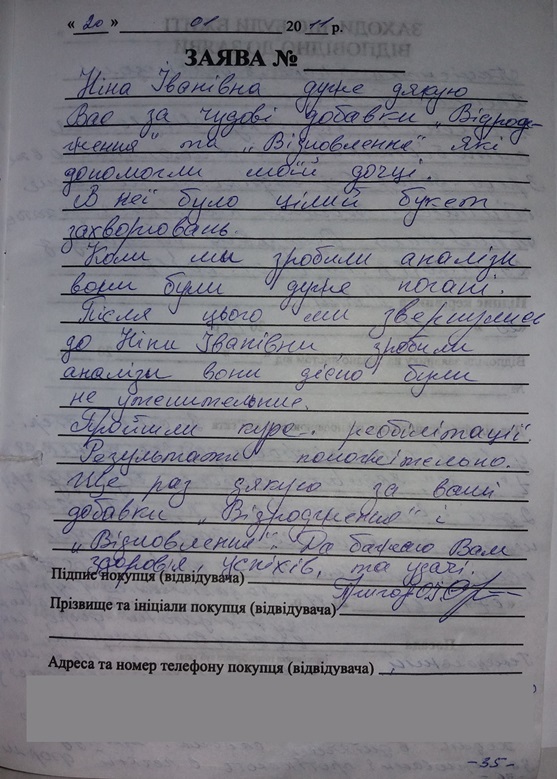 « 20 » 01 2011 р.
ЗАЯВА №
Ніна Іванівна дуже дякую
Вас за чудові добавки „Відрод-
ження" та „Відновлення" які
допомогли моїй дочці.
В неї було цілий букет
захворювань.
Коли ми зробили аналізи
вони були дуже погані.
Після цього ми звернулися
до Ніни Іванівни зробили
аналізи вони дісно були
не утешительние.
Пройшли курс реабілітації.
Результати положительно.
Ще раз дякую за ваші
добавки „Відродження" і
„Відновлення". Да бажаю Вам
здоров'я, успіхів, та удачі.
Підпис покупця (відвідувача)
Прізвище та ініціали покупця (відвідувача)
Адреса та номер телефону покупця (відвідувача)
-35-